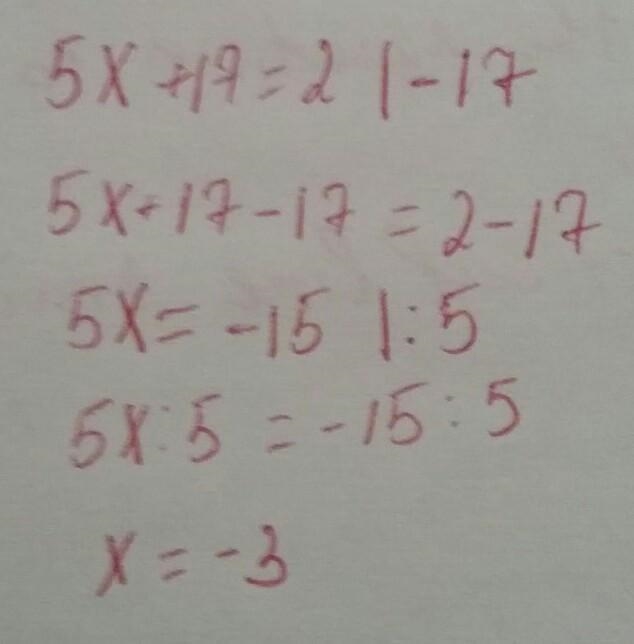 5x+17=2 |-17
5x+17-17=2-17
5x=-15 |:5
5x:5=-15:5
x=-3